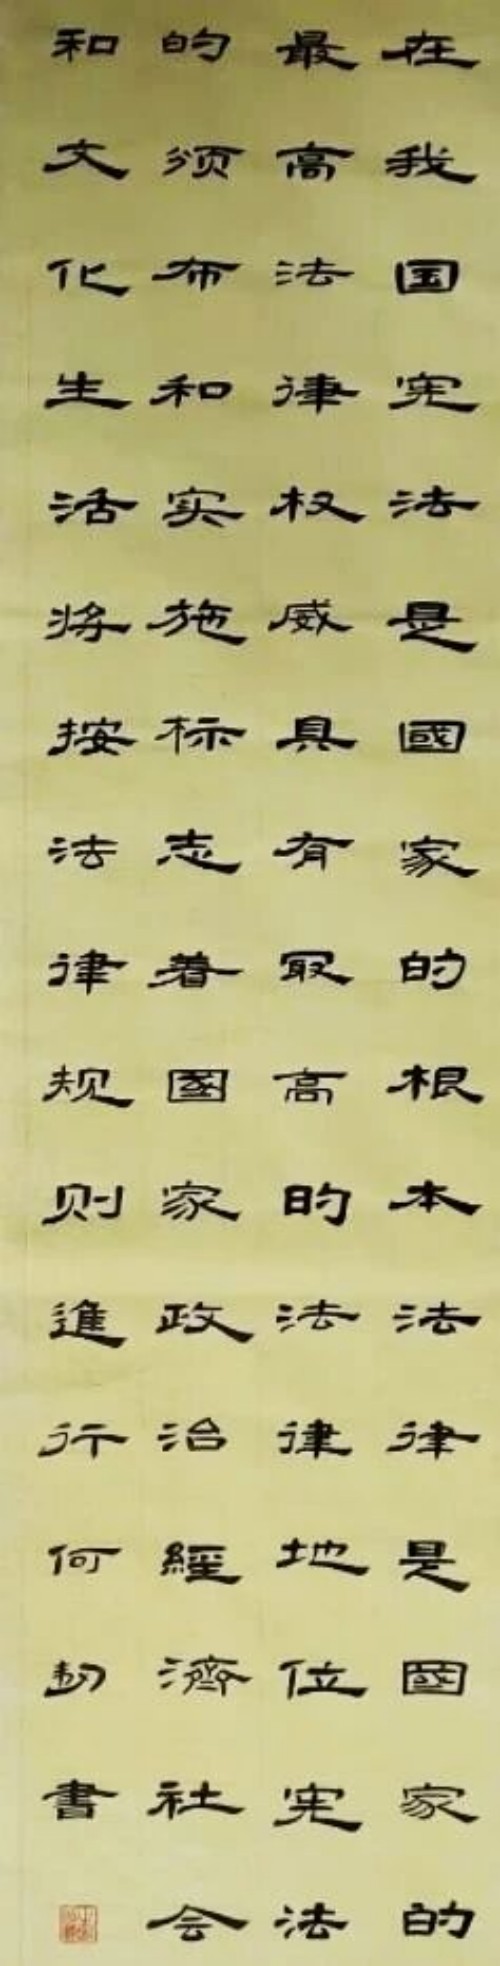 在我国宪法是國家的根本法律是國家的
最高法律权威具有冣高的法律地位宪法
的须布和实施标志着國家政治經濟社会
和文化生活将按法律规则進行何書